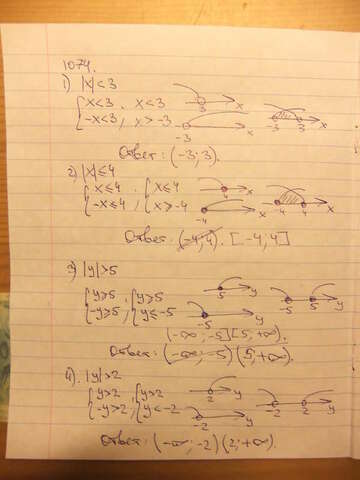 1074.
1) |x|<3
{ x<3, x<3
-x<3, x>-3
3 x
-3 x
-3 3 x
Ответ: (-3;3).
2) |x|≤4
{ x≤4, { x≤4
-x≤4, x>-4
4 x
-4 x
-4 4 x
Ответ: (-4;4). [-4;4]
3) |y|>5
{ y>5, { y>5
-y>5, y≤-5
5 y
-5 y
-5 5 y
(-∞;-5][5;+∞).
Ответ: (-∞;-5)(5;+∞)
4). |y|>2
{ y>2, { y>2
-y>2, y<-2
2 y
-2 y
-2 2 y
Ответ: (-∞;-2)(2;+∞).